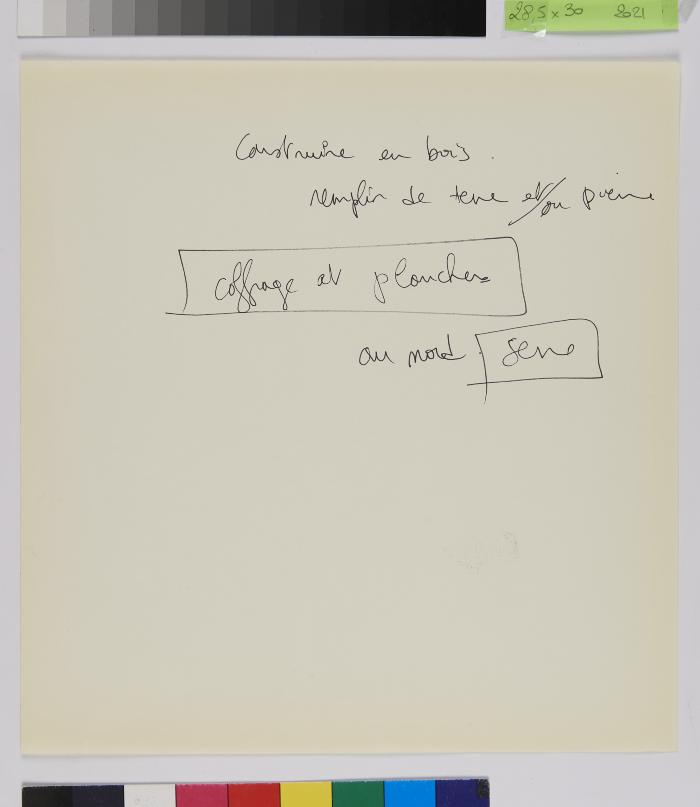 28,5 x 30 2021
Construire en bois.
remplir de terre et/ou pierre
coffrage et planches
au nord. serre